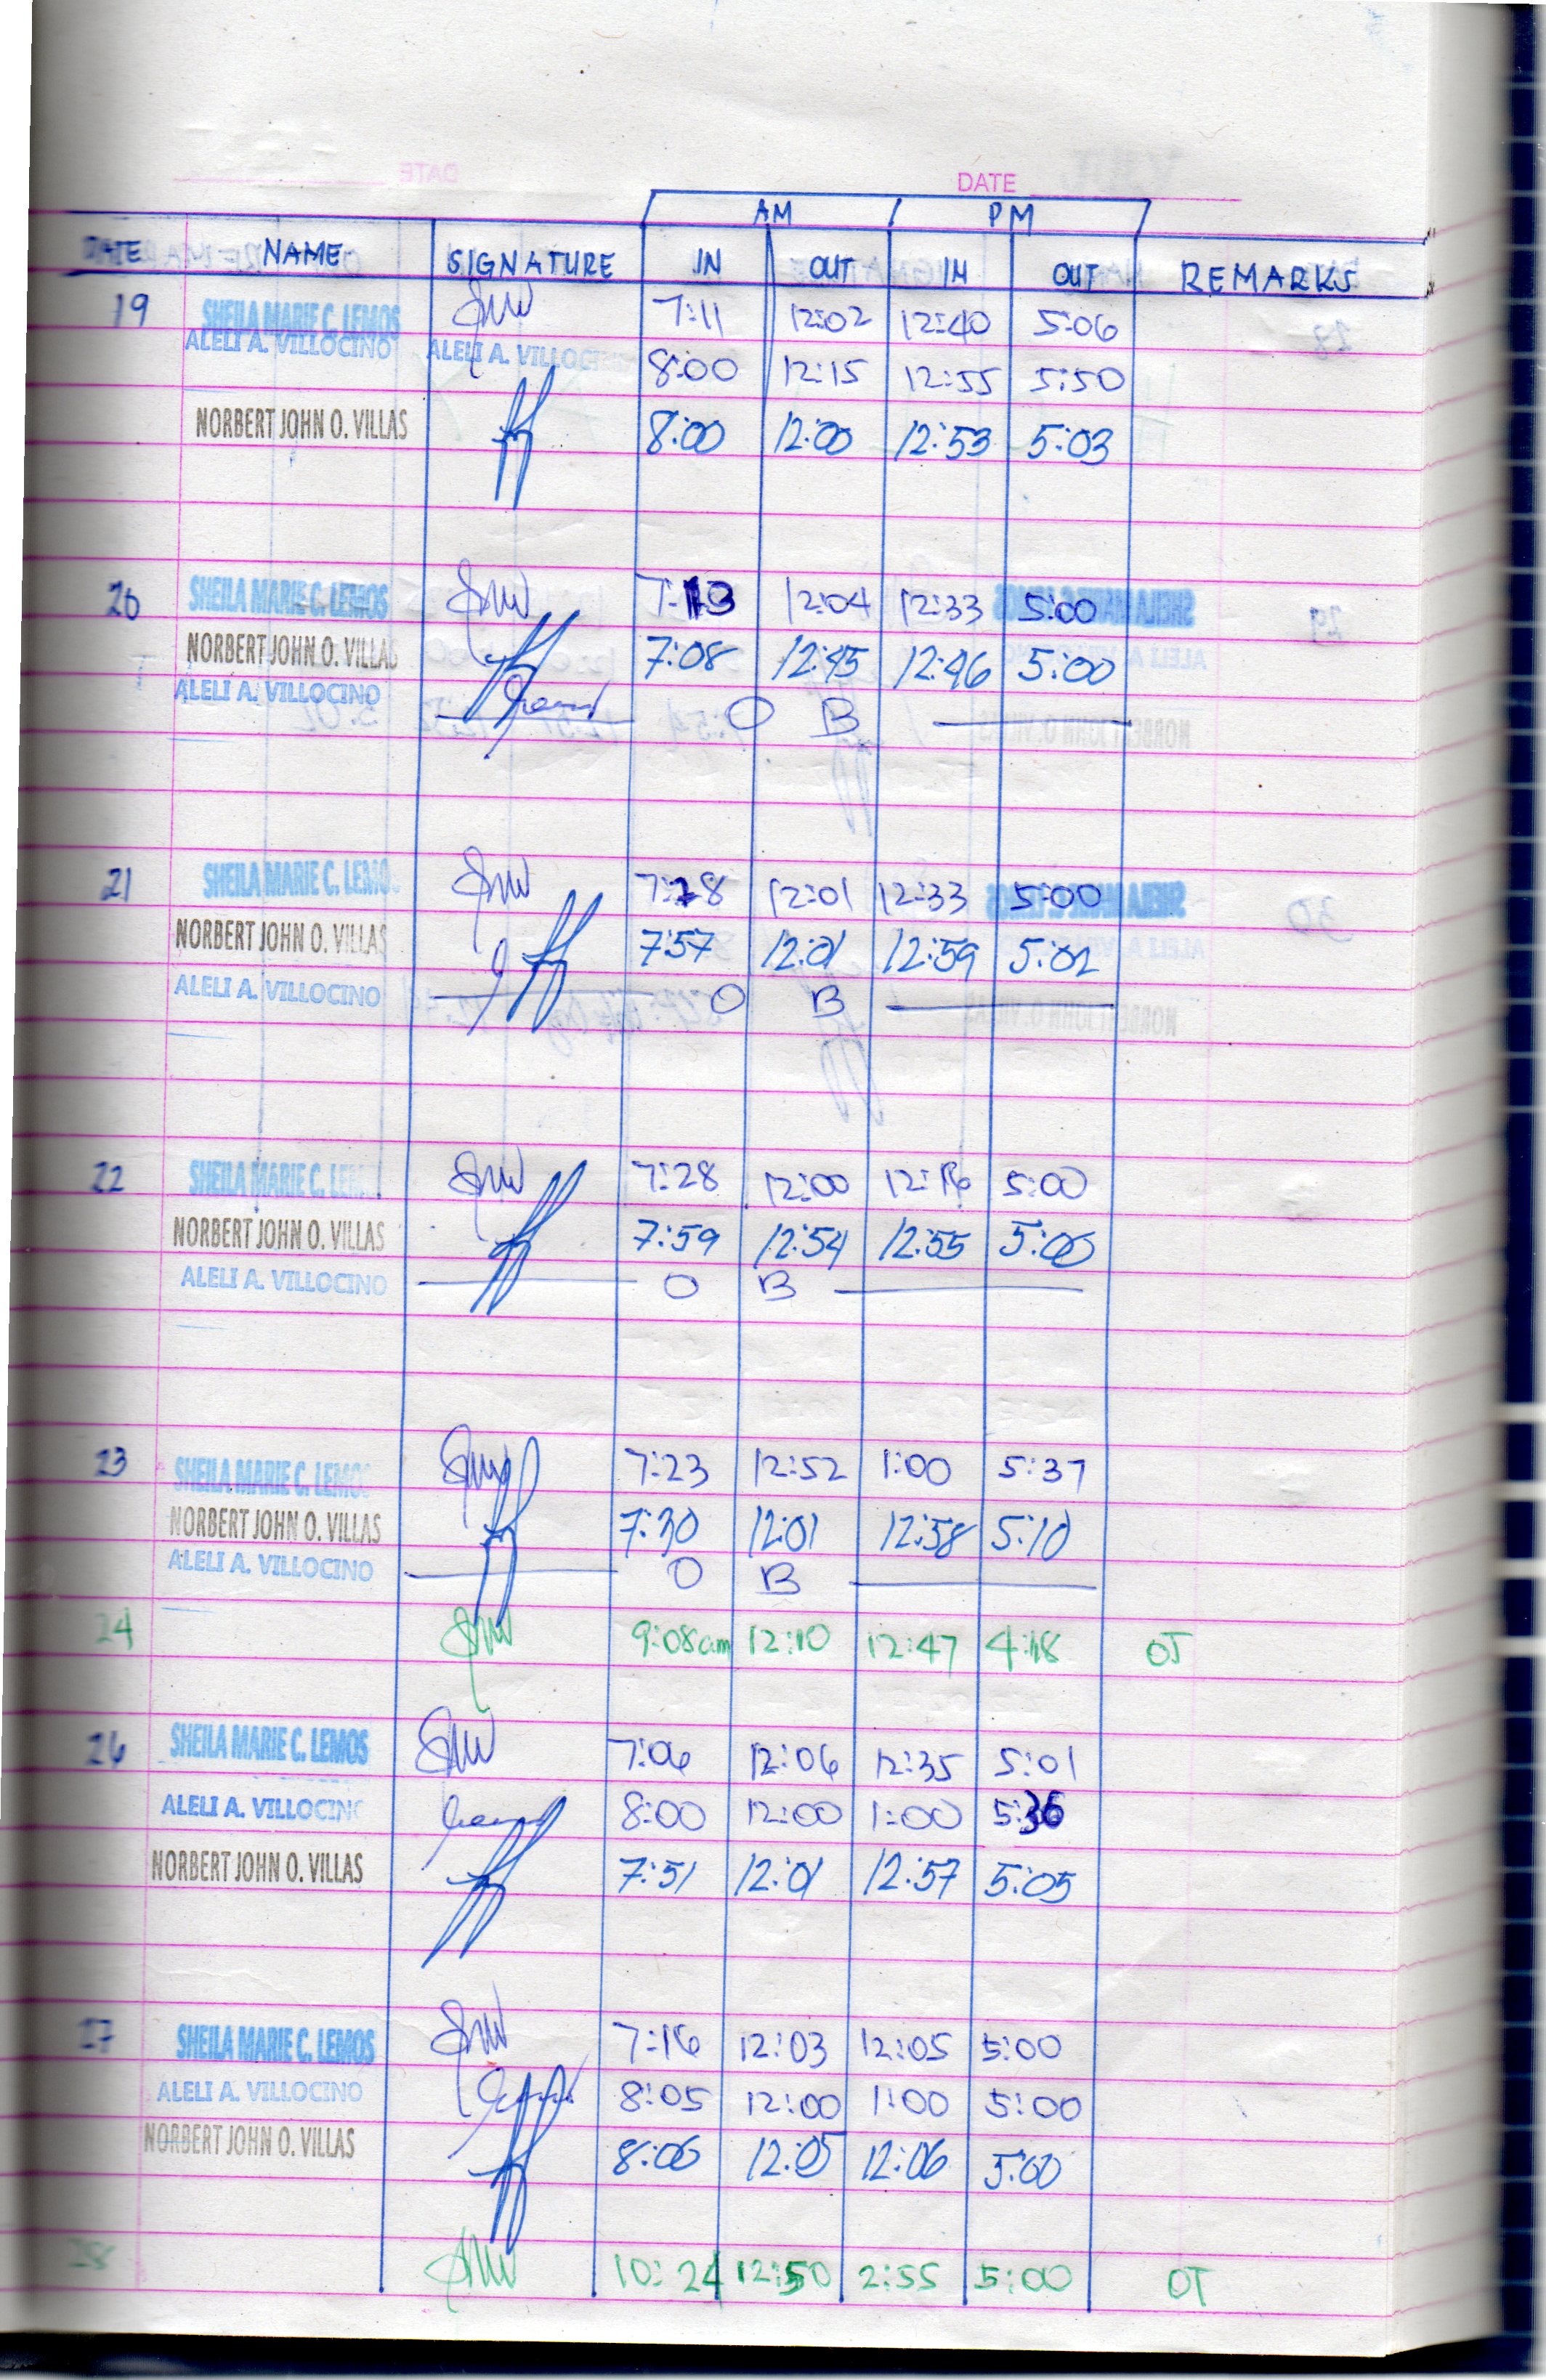 DATE
AM PM
DATE NAME SIGNATURE IN OUT IN OUT REMARKS
19 SHEILA MARIE C. LEMOS 7:11 12:02 12:40 5:06
ALELI A. VILLOCINO ALELI A. VILLOCINO 8:00 12:15 12:55 5:50
NORBERT JOHN O. VILLAS 8:00 12:00 12:53 5:03
20 SHEILA MARIE C. LEMOS 7:13 12:04 12:33 5:00
NORBERT JOHN O. VILLAS 7:08 12:45 12:46 5:00
ALELI A. VILLOCINO O B
21 SHEILA MARIE C. LEMOS 7:28 12:01 12:33 5:00
NORBERT JOHN O. VILLAS 7:57 12:01 12:59 5:02
ALELI A. VILLOCINO O B
22 SHEILA MARIE C. LEMOS 7:28 12:00 12:16 5:00
NORBERT JOHN O. VILLAS 7:59 12:54 12:55 5:00
ALELI A. VILLOCINO O B
23 SHEILA MARIE C. LEMOS 7:23 12:52 1:00 5:37
NORBERT JOHN O. VILLAS 7:30 12:01 12:58 5:10
ALELI A. VILLOCINO O B
24 9:08am 12:10 12:47 4:18 OT
26 SHEILA MARIE C. LEMOS 7:06 12:06 12:35 5:01
ALELI A. VILLOCINO 8:00 12:00 1:00 5:36
NORBERT JOHN O. VILLAS 7:51 12:01 12:57 5:05
27 SHEILA MARIE C. LEMOS 7:16 12:03 12:05 5:00
ALELI A. VILLOCINO 8:05 12:00 1:00 5:00
NORBERT JOHN O. VILLAS 8:00 12:05 12:06 5:00
28 10:24 12:50 2:55 5:00 OT